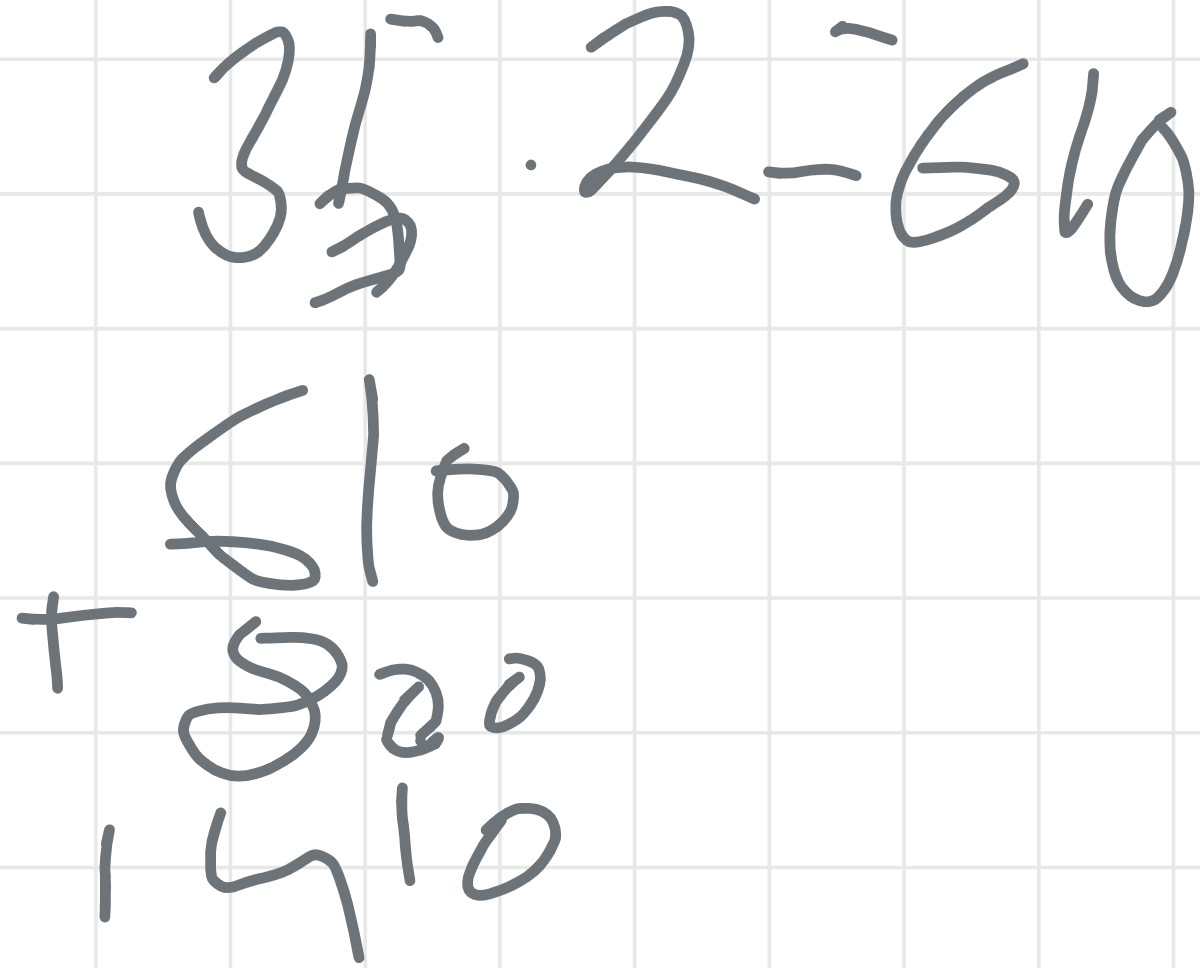 35 · 2 = 610
610
+ 800
1410